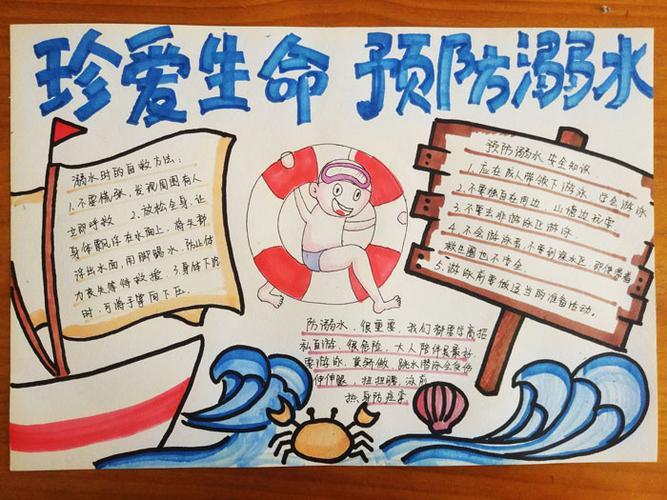 珍爱生命 预防溺水
溺水时的自救方法:
1.不要慌张,发现周围有人
立即呼救 2.放松全身,让
身体飘浮在水面上,将头部
浮出水面,用脚踢水,防止体
力丧失等待救援 3.身体下沉
时,可将手掌向下压。
预防溺水安全知识
1.应在成人带领下游泳 学会游泳
2.不要独自在河边 山塘边玩耍
3.不要去非游泳区游泳
4.不会游泳者,不要到深水区,即使带着
救生圈也不安全
5.游泳前要做适当的准备活动。
防溺水,很重要,我们都要学高招
私自游,很危险,大人陪伴是最好
要游泳,莫骄傲,跳水潜泳会
伸伸腿,扭扭腰,泳前
热身防痉挛